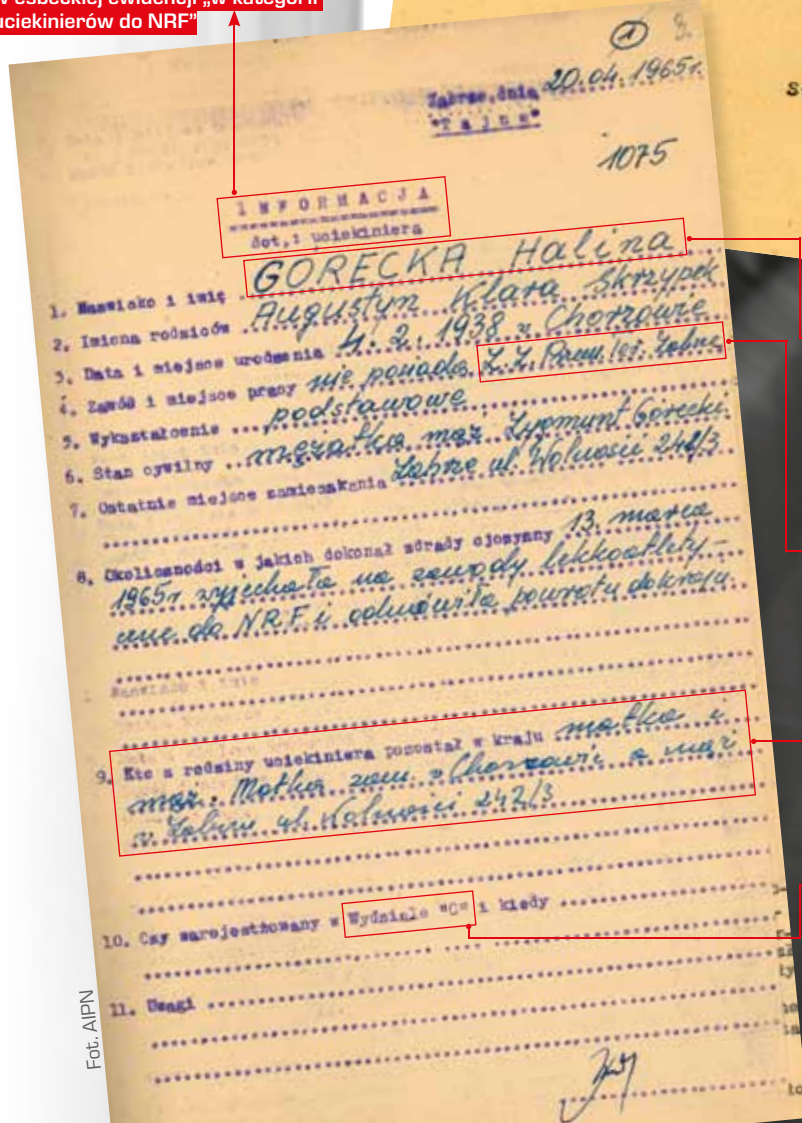 w esbeckiej ewidencji „w kategorii
uciekinierów do NRF”
1 8.
Zabrze, dnia 20.04.1965r.
"Tajne"
1075
INFORMACJA
dot,: uciekiniera
1. Nazwisko i imię GÓRECKA Halina
2. Imiona rodziców Augustyn Klara Skrzypek
3. Data i miejsce urodzenia 4.2.1938 w Chorzowie
4. Zawód i miejsce pracy nie posiada Z.Z. Zabrze
5. Wykształcenie podstawowe
6. Stan cywilny mężatka mąż Zygmunt Górecki
7. Ostatnie miejsce zamieszkania Zabrze ul. Wolności 242/3
8. Okoliczności w jakich dokonał zdrady ojczyzny 13. marca
1965r wyjechała na zawody lekkoatlety-
czne do NRF i odmówiła powrotu do kraju.
Nazwisko i imię
9. Kto z rodziny uciekiniera pozostał w kraju matka i
mąż. Matka zam. w Chorzowie a mąż
w Zabrzu ul. Wolności 242/3
10. Czy zarejestrowany w Wydziale "C" i kiedy
11. Uwagi
Fot. AIPN